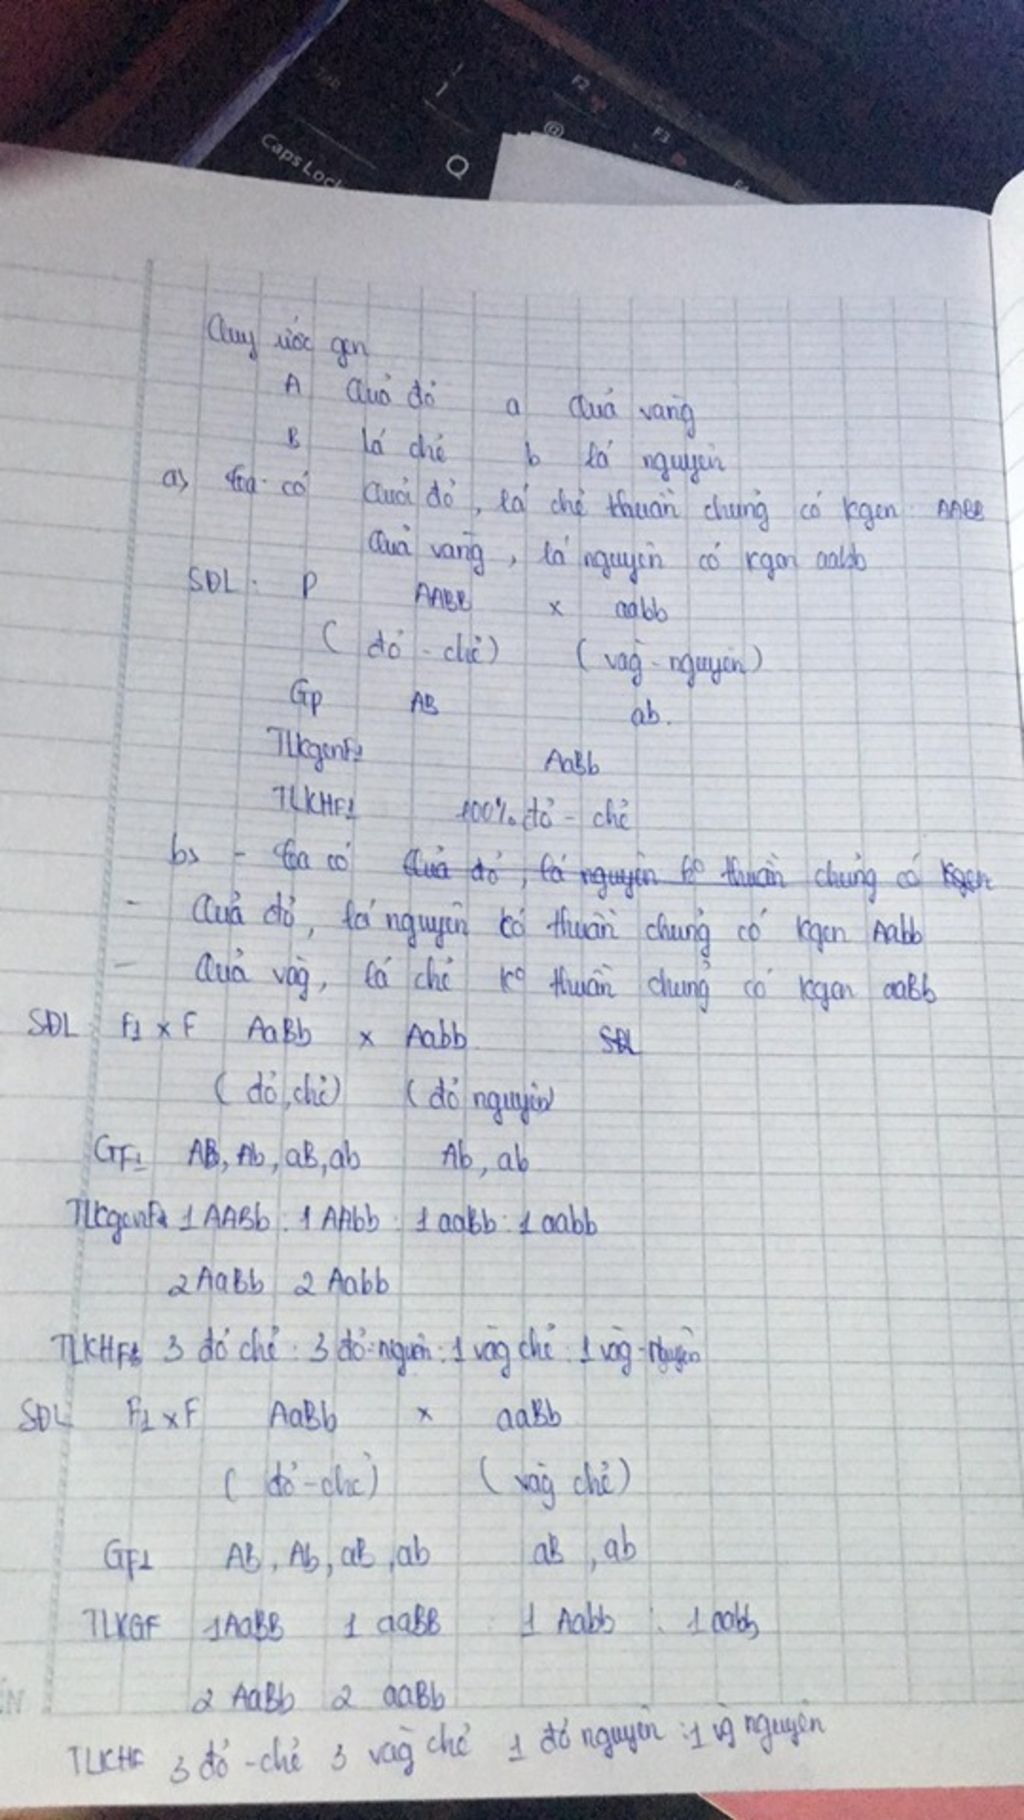 Caps Lock
Q
F2
@
F3
Quy ước gen
A Quả đỏ a Quả vàng
B lá chẻ b lá nguyên
a) Ta có Quả đỏ, lá chẻ thuần chủng có kgen AABB
Quả vàng, lá nguyên có kgen aabb
SĐL : P AABB x aabb
( đỏ - chẻ) ( vàg - nguyên)
Gp AB ab.
TLkgenF1 AaBb
TLKHF1 100% đỏ - chẻ
b) - Ta có Quả đỏ, lá nguyên ko thuần chủng có kgen
- Quả đỏ, lá nguyên kó thuần chủng có kgen Aabb
- Quả vàg, lá chẻ ko thuần chủng có kgen aaBb
SĐL F1 x F AaBb x Aabb SĐL
( đỏ, chẻ) ( đỏ nguyên)
GF1 AB, Ab, aB, ab Ab, ab
TLkgenF2 1 AABb : 1 AAbb : 1 aaBb : 1 aabb
2 AaBb 2 Aabb
TLKHF2 3 đỏ chẻ : 3 đỏ-nguên : 1 vàg chẻ : 1 vàg-nguyên
SĐL F1 x F AaBb x aaBb
( đỏ-chẻ) ( vàg chẻ)
GF1 AB, Ab, aB, ab aB, ab
TLKGF 1AaBB 1 aaBB : 1 Aabb : 1 aabb
2 AaBb 2 aaBb
TLKHF 3 đỏ -chẻ 3 vàg chẻ 1 đỏ nguyên : 1 vg nguyên